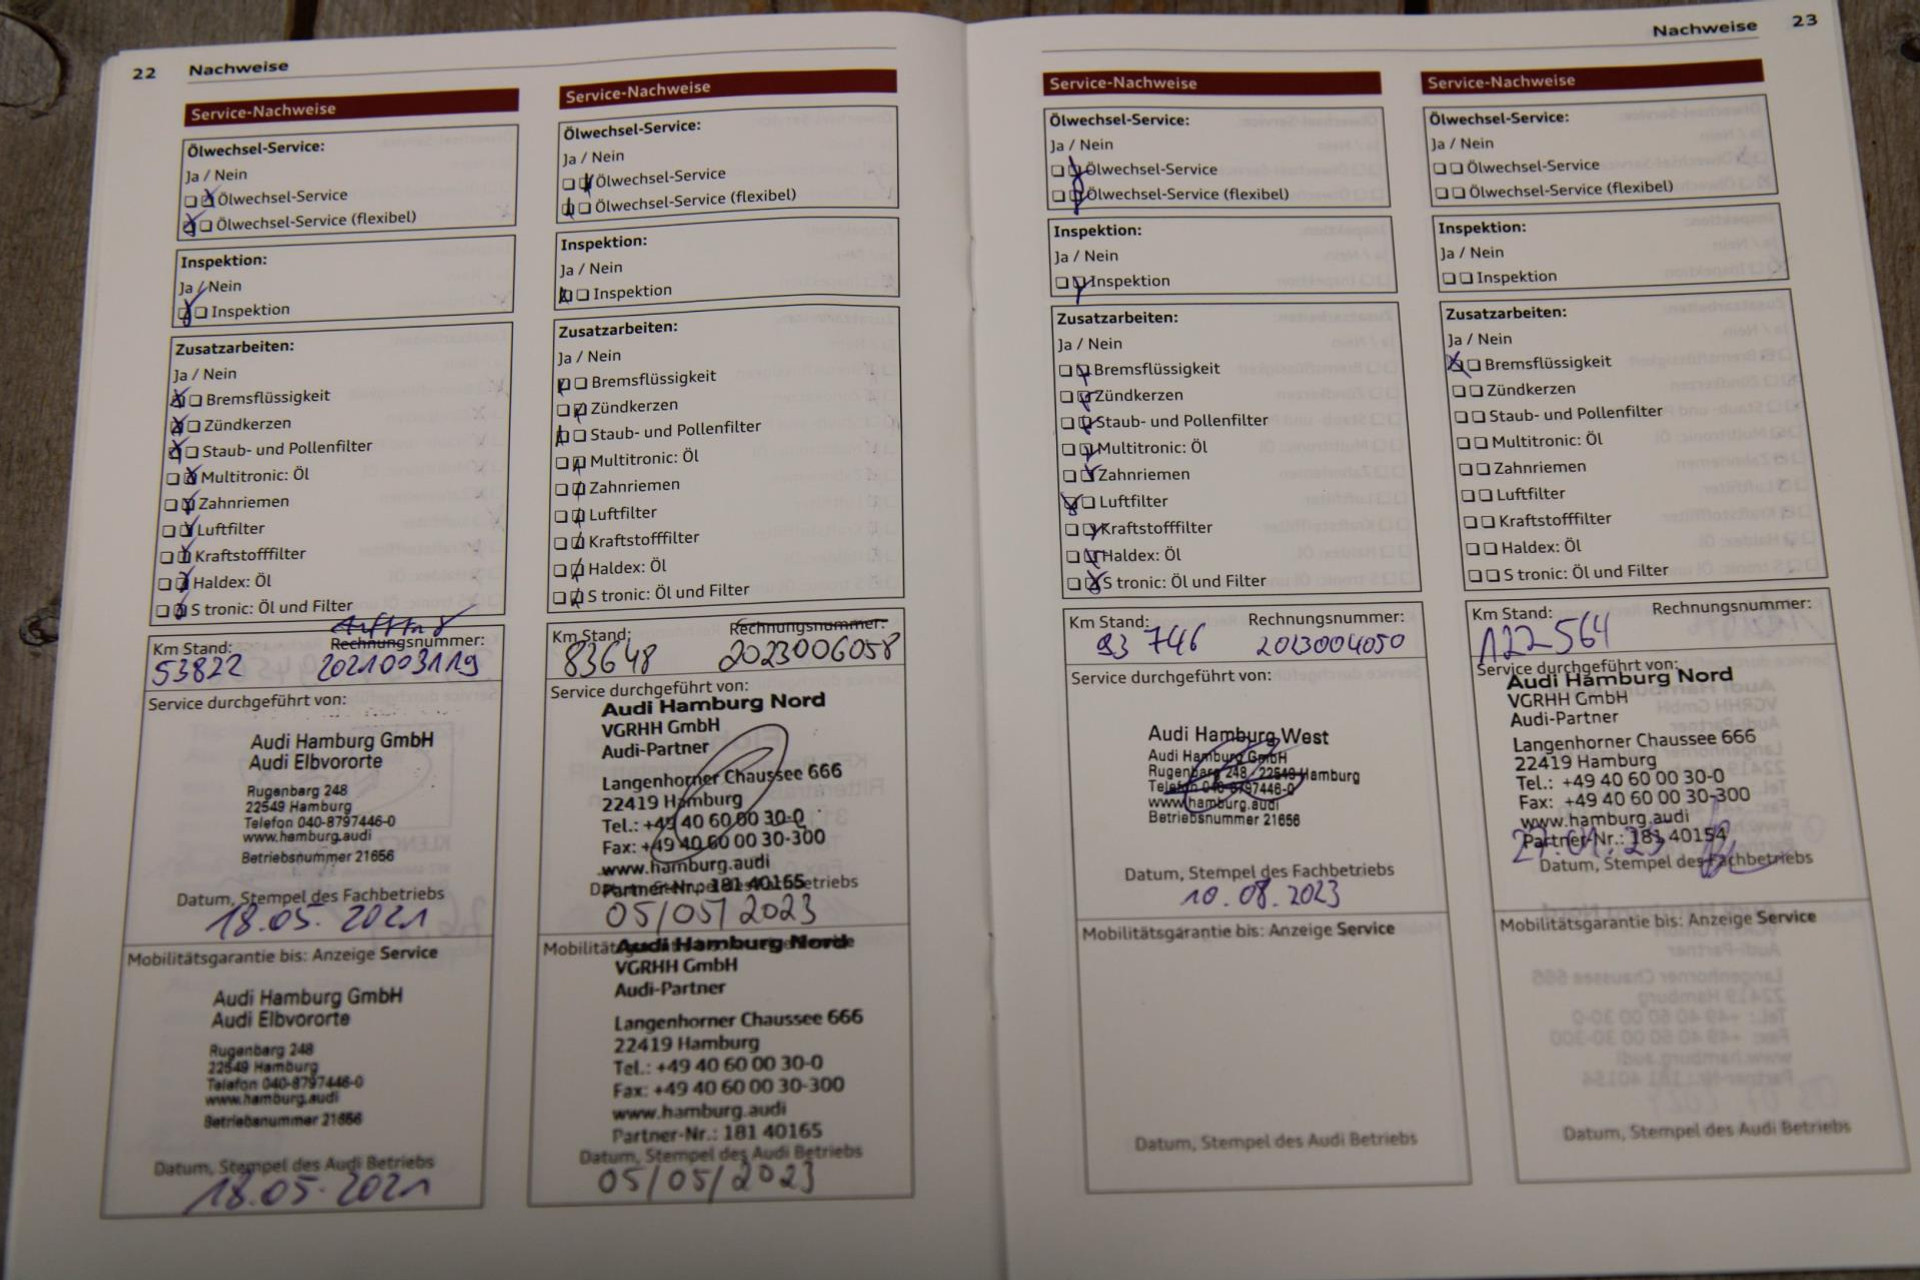 22 Nachweise
Service-Nachweise
Ölwechsel-Service:
Ja / Nein
Ölwechsel-Service
Ölwechsel-Service (flexibel)
Inspektion:
Ja / Nein
Inspektion
Zusatzarbeiten:
Ja / Nein
Bremsflüssigkeit
Zündkerzen
Staub- und Pollenfilter
Multitronic: Öl
Zahnriemen
Luftfilter
Kraftstofffilter
Haldex: Öl
S tronic: Öl und Filter
Km Stand: Rechnungsnummer:
53822 2021003119
Service durchgeführt von:
Audi Hamburg GmbH
Audi Elbvororte
Rugenbarg 248
22549 Hamburg
Telefon 040-8797446-0
www.hamburg.audi
Betriebsnummer 21656
Datum, Stempel des Fachbetriebs
18.05.2021
Mobilitätsgarantie bis: Anzeige Service
Audi Hamburg GmbH
Audi Elbvororte
Rugenbarg 248
22549 Hamburg
Telefon 040-8797446-0
www.hamburg.audi
Betriebsnummer 21656
Datum, Stempel des Audi Betriebs
18.05.2021
Service-Nachweise
Ölwechsel-Service:
Ja / Nein
Ölwechsel-Service
Ölwechsel-Service (flexibel)
Inspektion:
Ja / Nein
Inspektion
Zusatzarbeiten:
Ja / Nein
Bremsflüssigkeit
Zündkerzen
Staub- und Pollenfilter
Multitronic: Öl
Zahnriemen
Luftfilter
Kraftstofffilter
Haldex: Öl
S tronic: Öl und Filter
Km Stand: Rechnungsnummer:
83648 2023006058
Service durchgeführt von:
Audi Hamburg Nord
VGRHH GmbH
Audi-Partner
Langenhorner Chaussee 666
22419 Hamburg
Tel.: +49 40 60 00 30-0
Fax: +49 40 60 00 30-300
www.hamburg.audi
Partner-Nr.: 181 40165
Datum, Stempel des Fachbetriebs
05/05/2023
Mobilitätsgarantie
Audi Hamburg Nord
VGRHH GmbH
Audi-Partner
Langenhorner Chaussee 666
22419 Hamburg
Tel.: +49 40 60 00 30-0
Fax: +49 40 60 00 30-300
www.hamburg.audi
Partner-Nr.: 181 40165
Datum, Stempel des Audi Betriebs
05/05/2023
Nachweise 23
Service-Nachweise
Ölwechsel-Service:
Ja / Nein
Ölwechsel-Service
Ölwechsel-Service (flexibel)
Inspektion:
Ja / Nein
Inspektion
Zusatzarbeiten:
Ja / Nein
Bremsflüssigkeit
Zündkerzen
Staub- und Pollenfilter
Multitronic: Öl
Zahnriemen
Luftfilter
Kraftstofffilter
Haldex: Öl
S tronic: Öl und Filter
Km Stand: Rechnungsnummer:
93 746 2023004050
Service durchgeführt von:
Audi Hamburg West
Audi Hamburg GmbH
Rugenbarg 248 · 22549 Hamburg
Telefon 040-8797446-0
www.hamburg.audi
Betriebsnummer 21656
Datum, Stempel des Fachbetriebs
10.08.2023
Mobilitätsgarantie bis: Anzeige Service
Datum, Stempel des Audi Betriebs
Service-Nachweise
Ölwechsel-Service:
Ja / Nein
Ölwechsel-Service
Ölwechsel-Service (flexibel)
Inspektion:
Ja / Nein
Inspektion
Zusatzarbeiten:
Ja / Nein
Bremsflüssigkeit
Zündkerzen
Staub- und Pollenfilter
Multitronic: Öl
Zahnriemen
Luftfilter
Kraftstofffilter
Haldex: Öl
S tronic: Öl und Filter
Km Stand: Rechnungsnummer:
122564
Service durchgeführt von:
Audi Hamburg Nord
VGRHH GmbH
Audi-Partner
Langenhorner Chaussee 666
22419 Hamburg
Tel.: +49 40 60 00 30-0
Fax: +49 40 60 00 30-300
www.hamburg.audi
Partner-Nr.: 181 40154
Datum, Stempel des Fachbetriebs
Mobilitätsgarantie bis: Anzeige Service
Datum, Stempel des Audi Betriebs